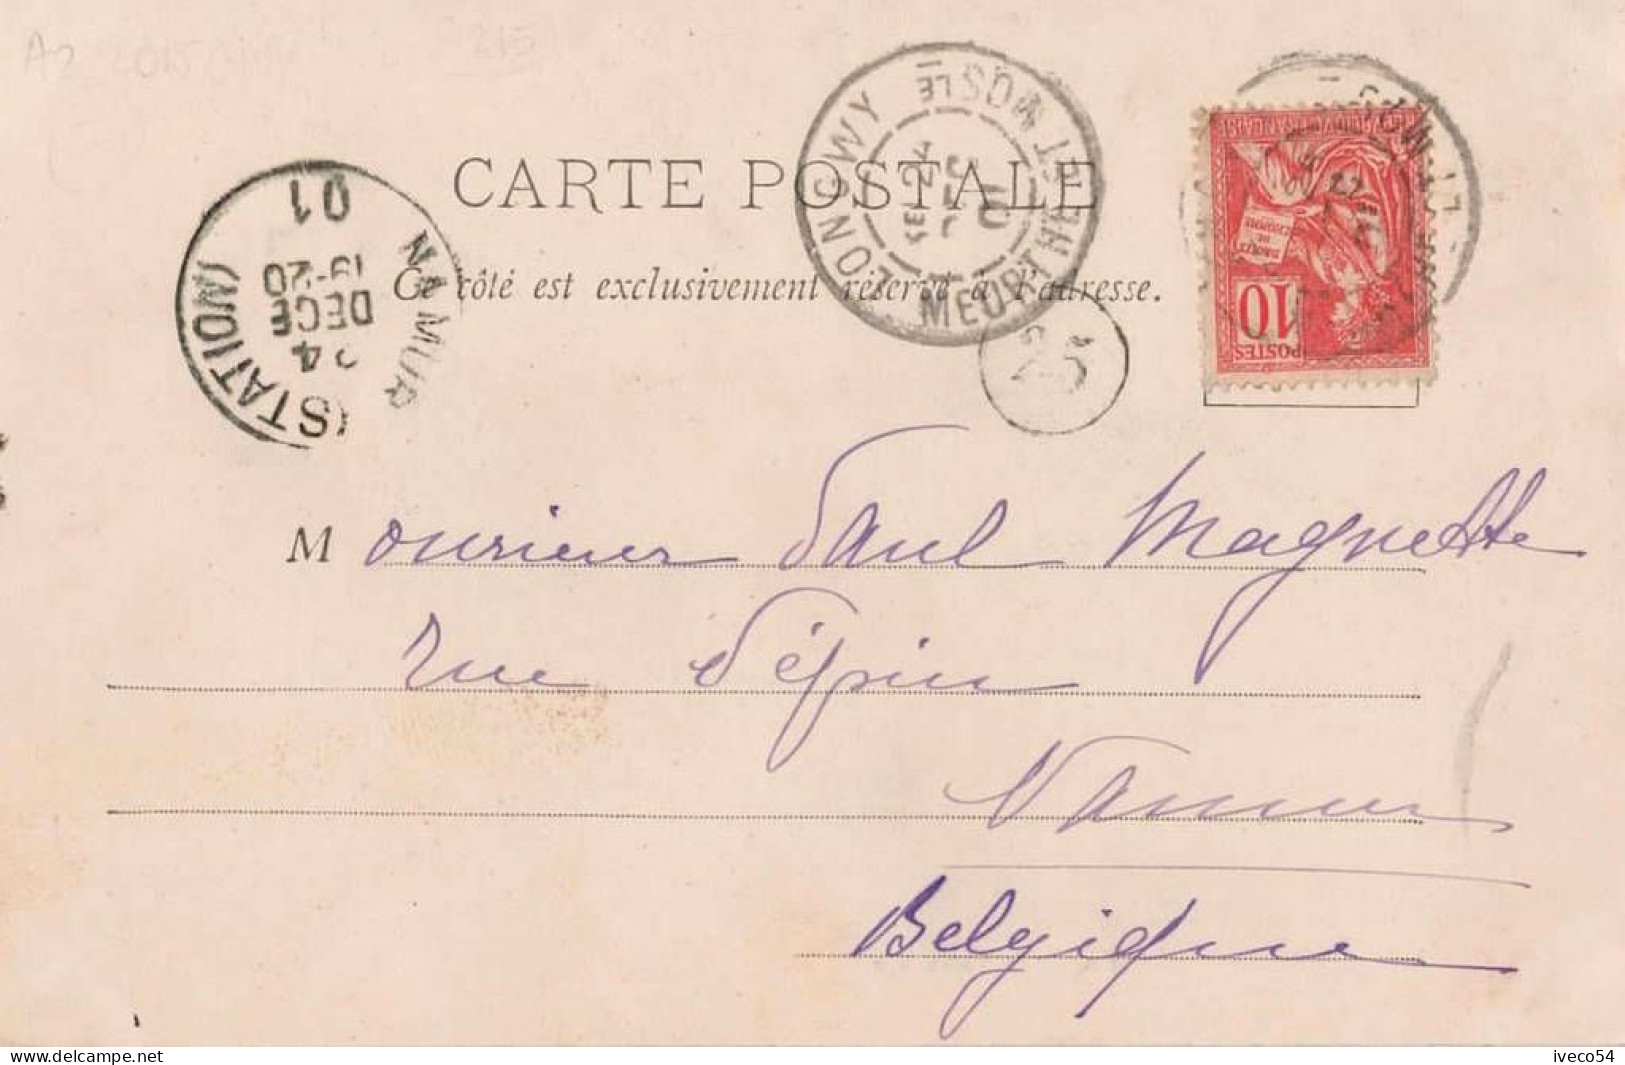 A2
215
CARTE POSTALE
Ce côté est exclusivement réservé à l'adresse.
LONGWY
MEURTHE ET MOSLE
01
NAMUR (STATION)
24
DECE
19-20
01
RÉPUBLIQUE FRANÇAISE
DROITS
DE
L'HOMME
10
POSTES
Monsieur Paul Magnette
rue Pépin
Namur
Belgique
www.delcampe.net
iveco54